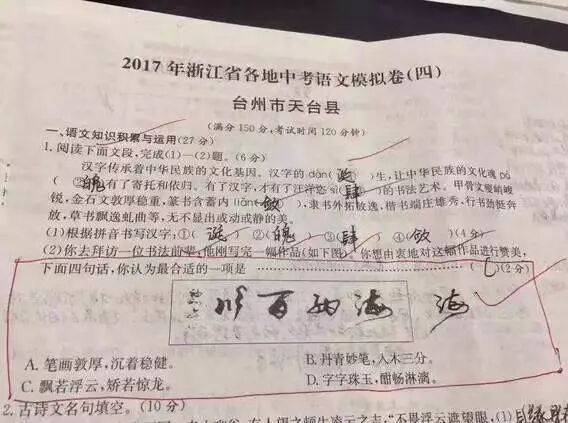 2017年浙江省各地中考语文模拟卷(四)
台州市天台县
(满分150分,考试时间120分钟)
一、语文知识积累与运用(27分)
1. 阅读下面文段,完成(1)—(2)题。(6分)
汉字传承着中华民族的文化基因。汉字的dàn(诞)生,让中华民族的文化魂pò
(②魄)有了寄托和依归。有了汉字,才有了汪洋恣sì(肆)的书法艺术。甲骨文瘦峭峻
锐,金石文敦厚稳重,篆书含蓄内liǎn(敛),隶书外拓放逸,楷书端庄雄秀,行书劲挺奔
放,草书飘逸虬曲等,无不提出或动或静的美。
(1)根据拼音书写汉字。①(诞)②(魄)③(肆)④(敛)(4分)
(2)你去拜访一位书法前辈,他刚写完一幅作品(如下图),你想由衷地对这幅作品进行赞美,
下面四句话,你认为最合适的一项是(C)(2分)
海纳百川
海
A. 笔画敦厚,沉着稳健。
B. 丹青妙笔,入木三分。
C. 飘若浮云,矫若惊龙。
D. 字字珠玉,酣畅淋漓。
2. 古诗文名句填空。(10分)
有人望之顿生凌云之志,“不畏浮云遮望眼,(1)自缘身在